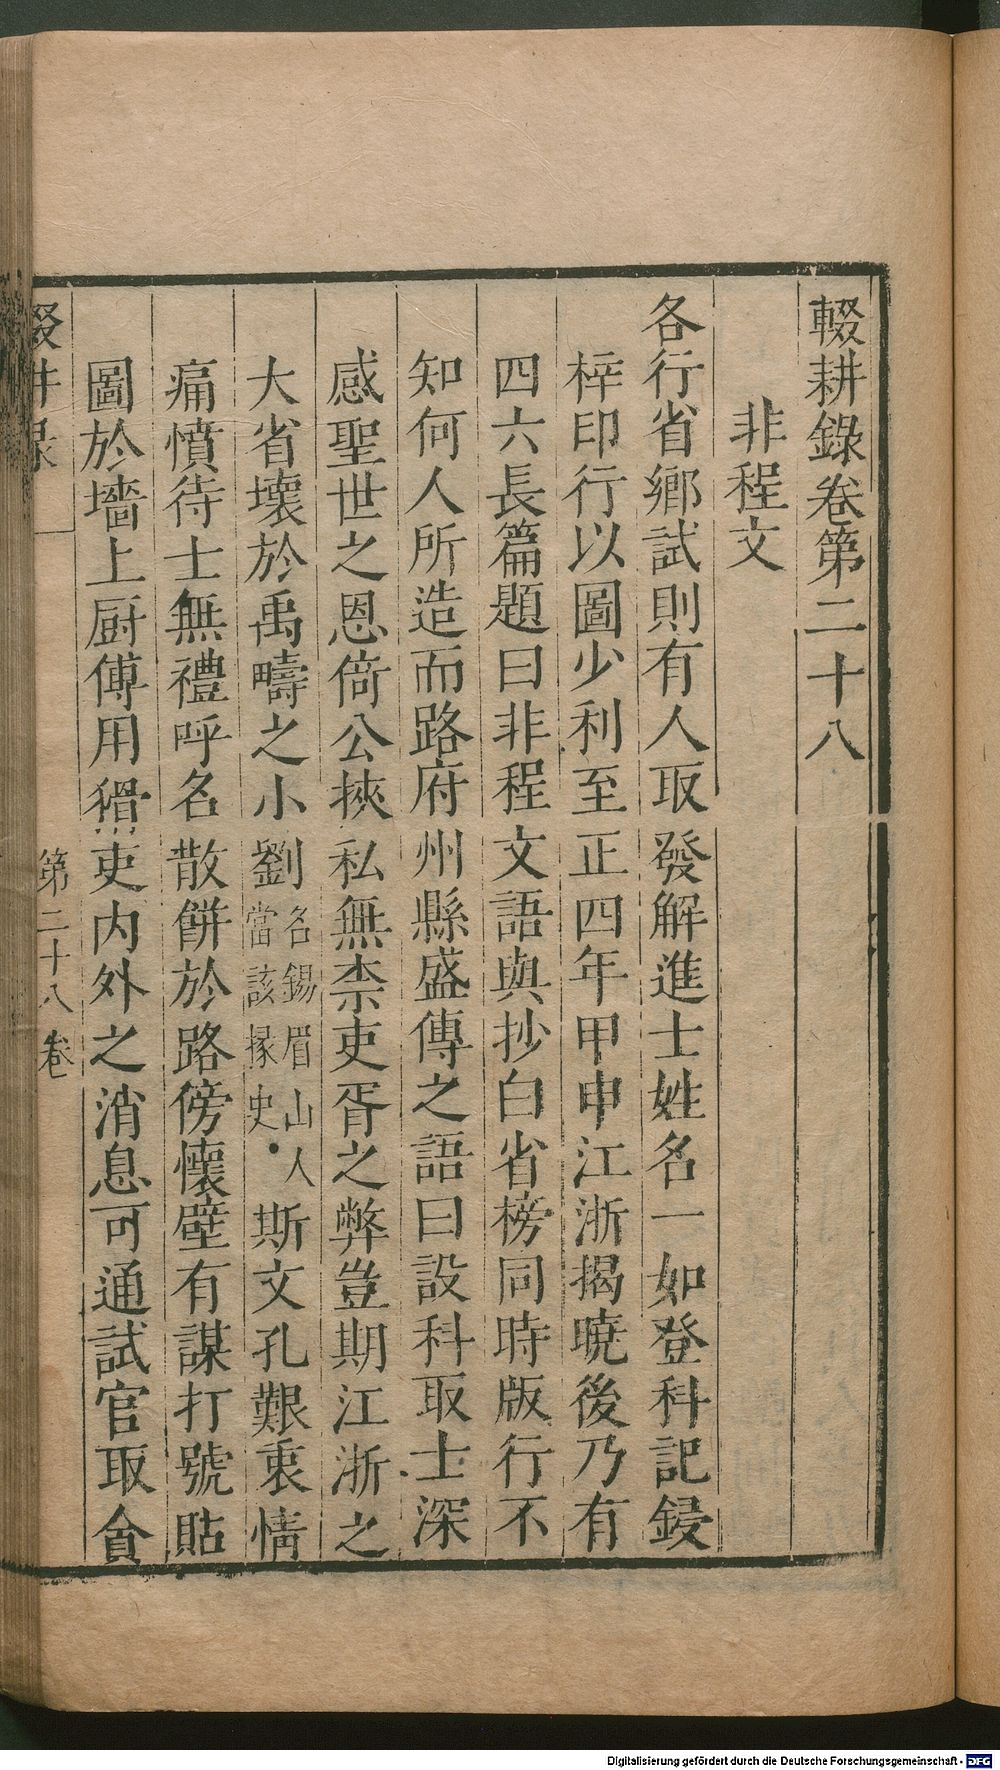 輟耕錄卷第二十八
非程文
各行省鄉試則有人取發解進士姓名一如登科記鋟
梓印行以圖少利至正四年甲申江浙揭曉後乃有
四六長篇題曰非程文語與抄白省榜同時版行不
知何人所造而路府州縣盛傳之語曰設科取士深
感聖世之恩倚公挾私無柰吏胥之弊豈期江浙之
大省壞於禹疇之小劉名錫眉山人當該掾史斯文孔艱衷情
痛憤待士無禮呼名散餅於路傍懷壁有謀打號貼
圖於墻上厨傳用猾吏内外之消息可通試官取貪
輟耕录 第二十八卷
Digitalisierung gefördert durch die Deutsche Forschungsgemeinschaft - DFG